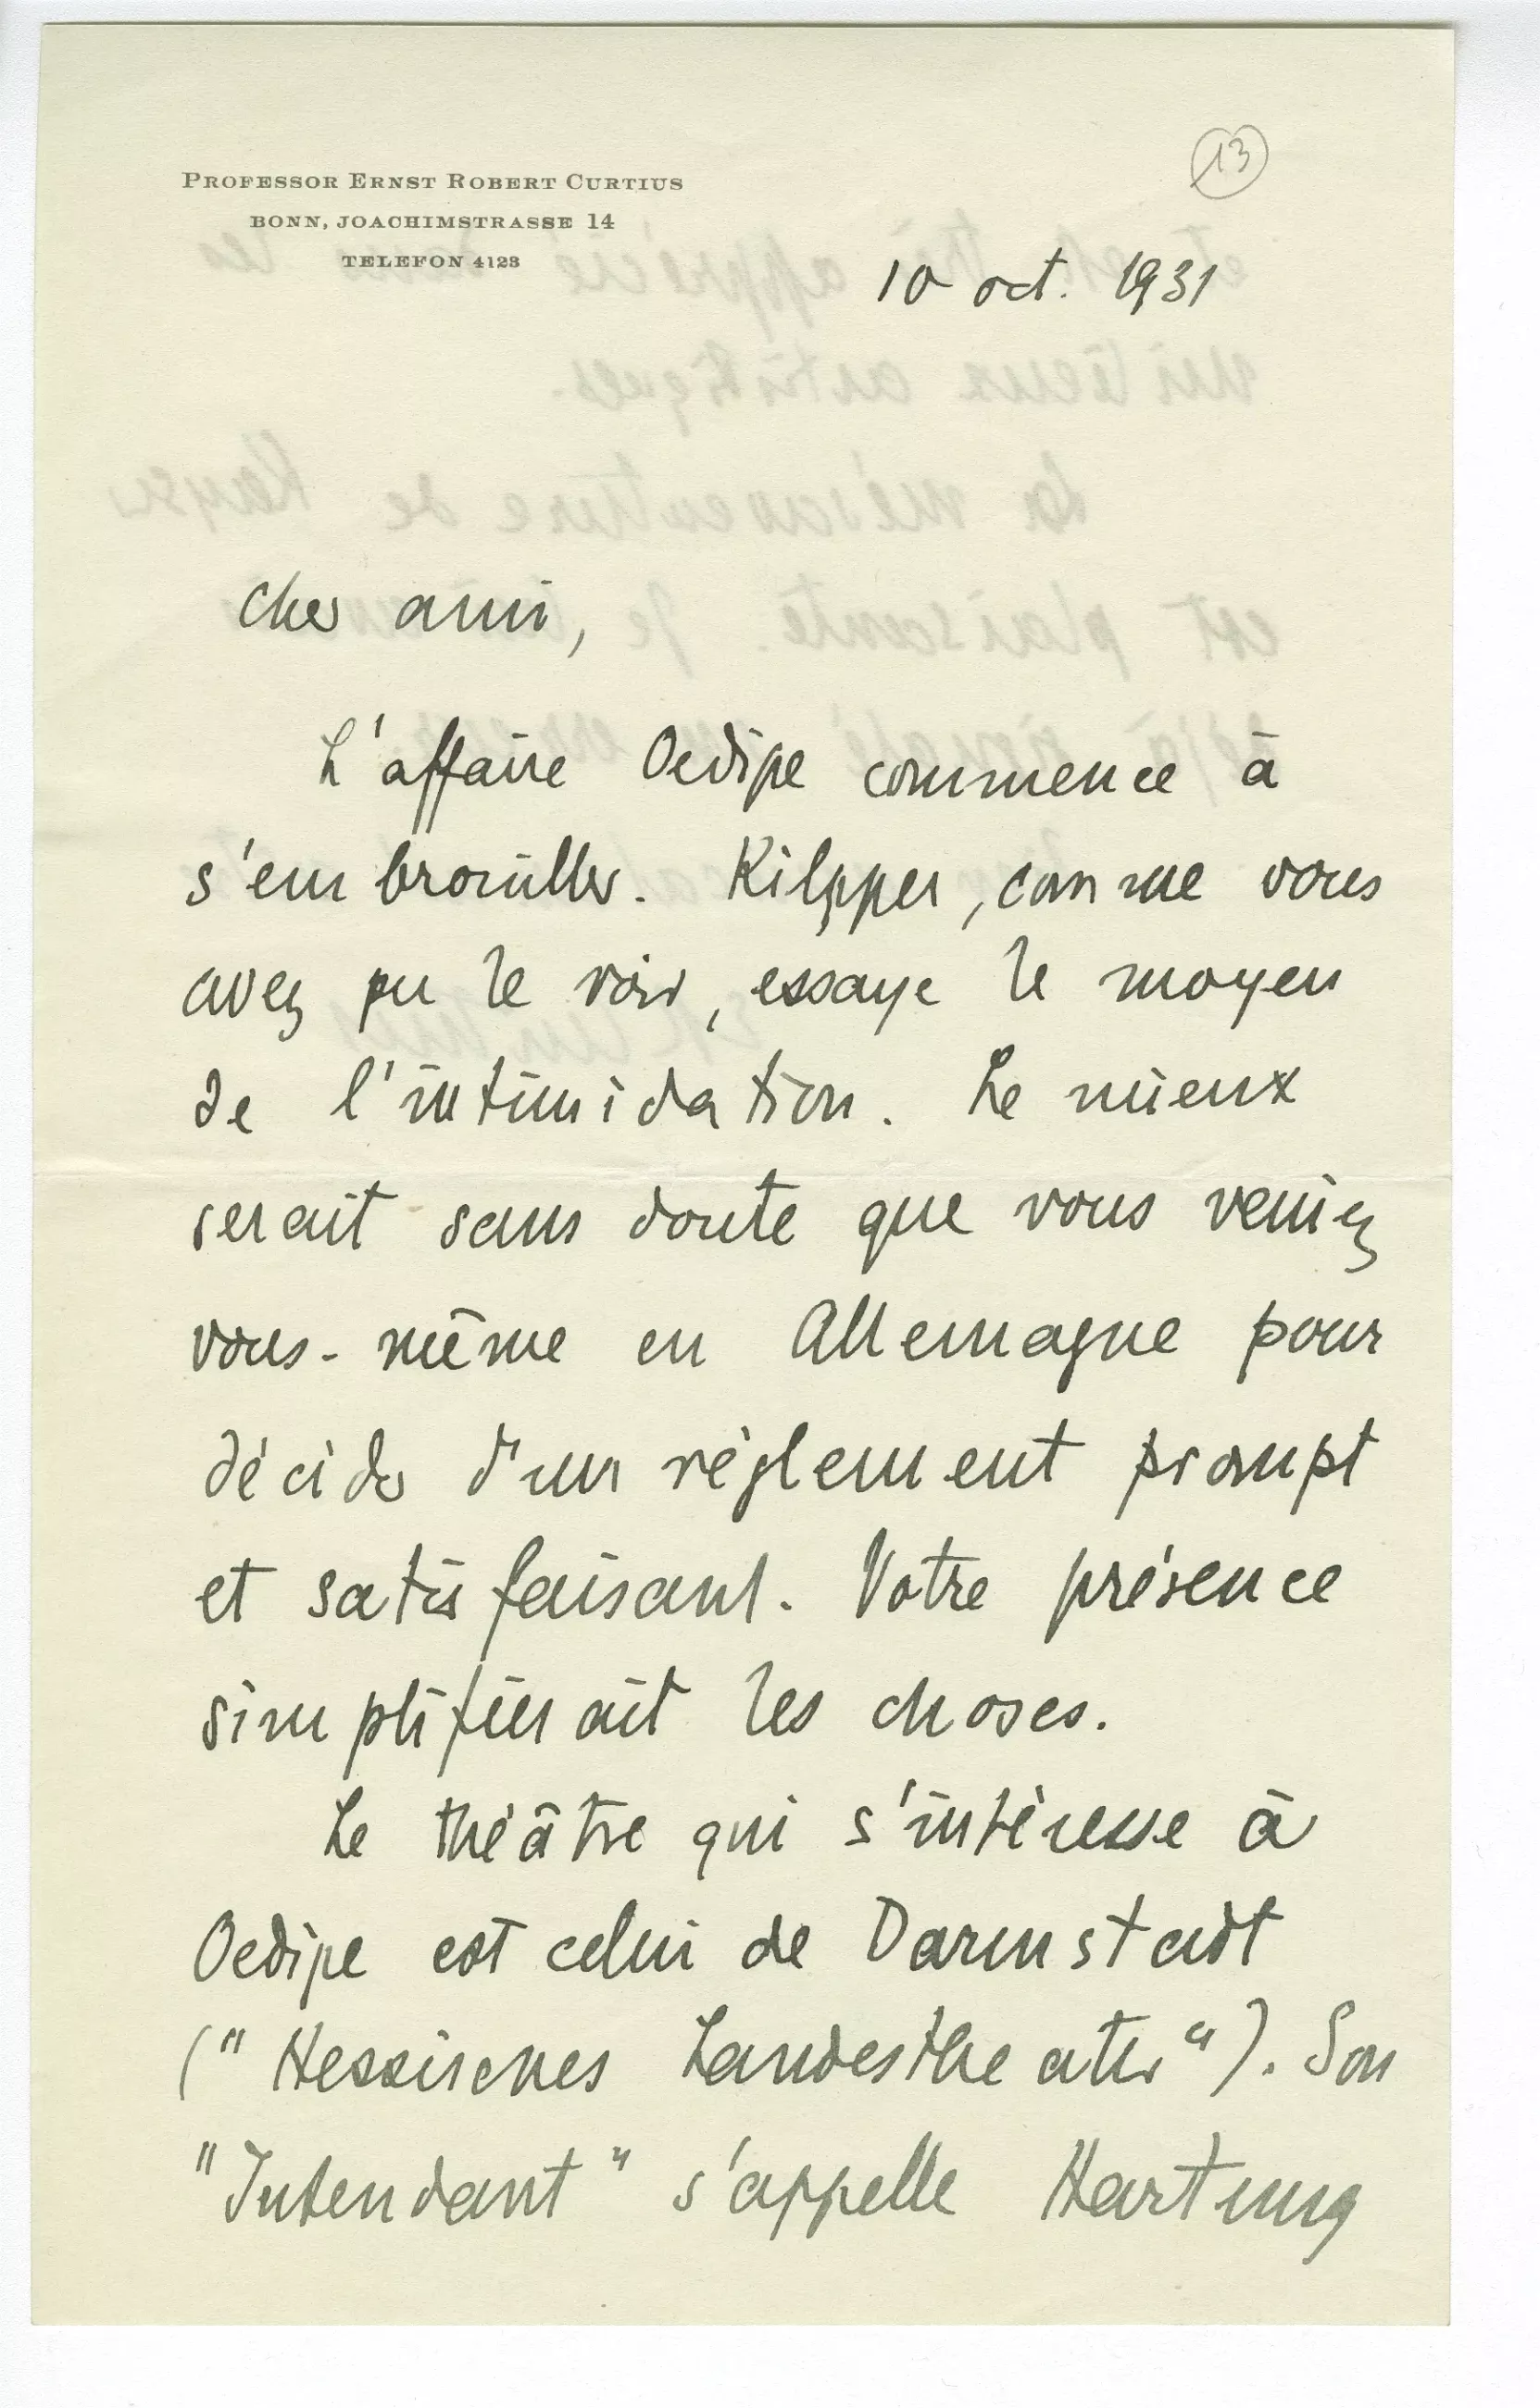 13
PROFESSOR ERNST ROBERT CURTIUS
BONN, JOACHIMSTRASSE 14
TELEFON 4128
10 oct. 1931
Cher ami,
L'affaire Oedipe commence à
s'embrouiller. Kilpper, comme vous
avez pu le voir, essaye le moyen
de l'intimidation. Le mieux
serait sans doute que vous veniez
vous-même en Allemagne pour
décider d'un réglement prompt
et satisfaisant. Votre présence
simplifierait les choses.
Le théâtre qui s'intéresse à
Oedipe est celui de Darmstadt
("Hessisches Landestheater"). Son
"Intendant" s'appelle Hartung